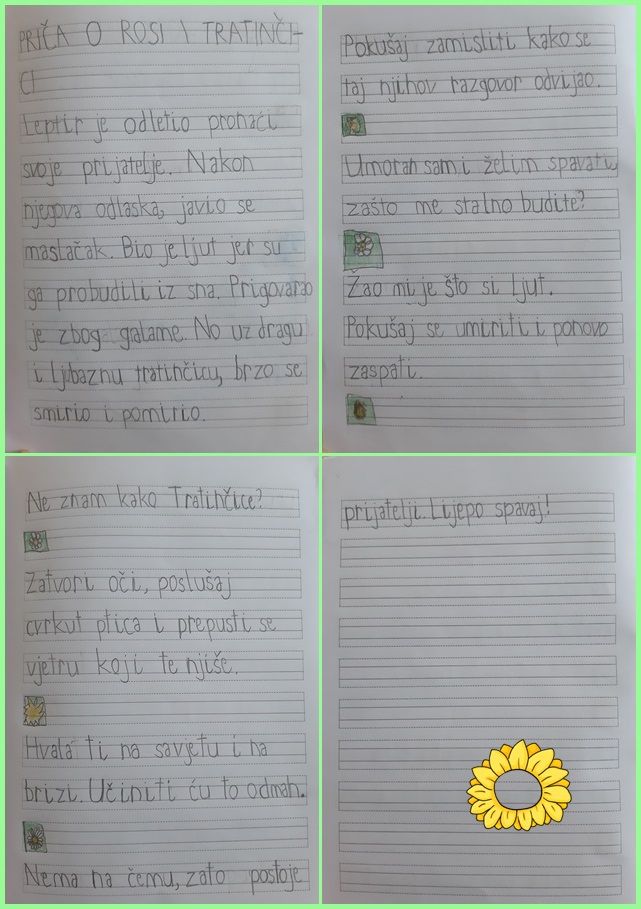 PRIČA O ROSI I TRATINČI-
CI
Leptir je odletio pronaći
svoje prijatelje. Nakon
njegova odlaska, javio se
maslačak. Bio je ljut jer su
ga probudili iz sna. Prigovarao
je zbog galame. No uz dragu
i ljubaznu tratinčicu, brzo se
smirio i pomirio.
Pokušaj zamisliti kako se
taj njihov razgovor odvijao.
Umoran sam i želim spavati,
zašto me stalno budite?
Žao mi je što si ljut.
Pokušaj se umiriti i ponovo
zaspati.
Ne znam kako Tratinčice?
Zatvori oči, poslušaj
cvrkut ptica i prepusti se
vjetru koji te njiše.
Hvala ti na savjetu i na
brizi. Učiniti ću to odmah.
Nema na čemu, zato postoje
prijatelji. Lijepo spavaj!